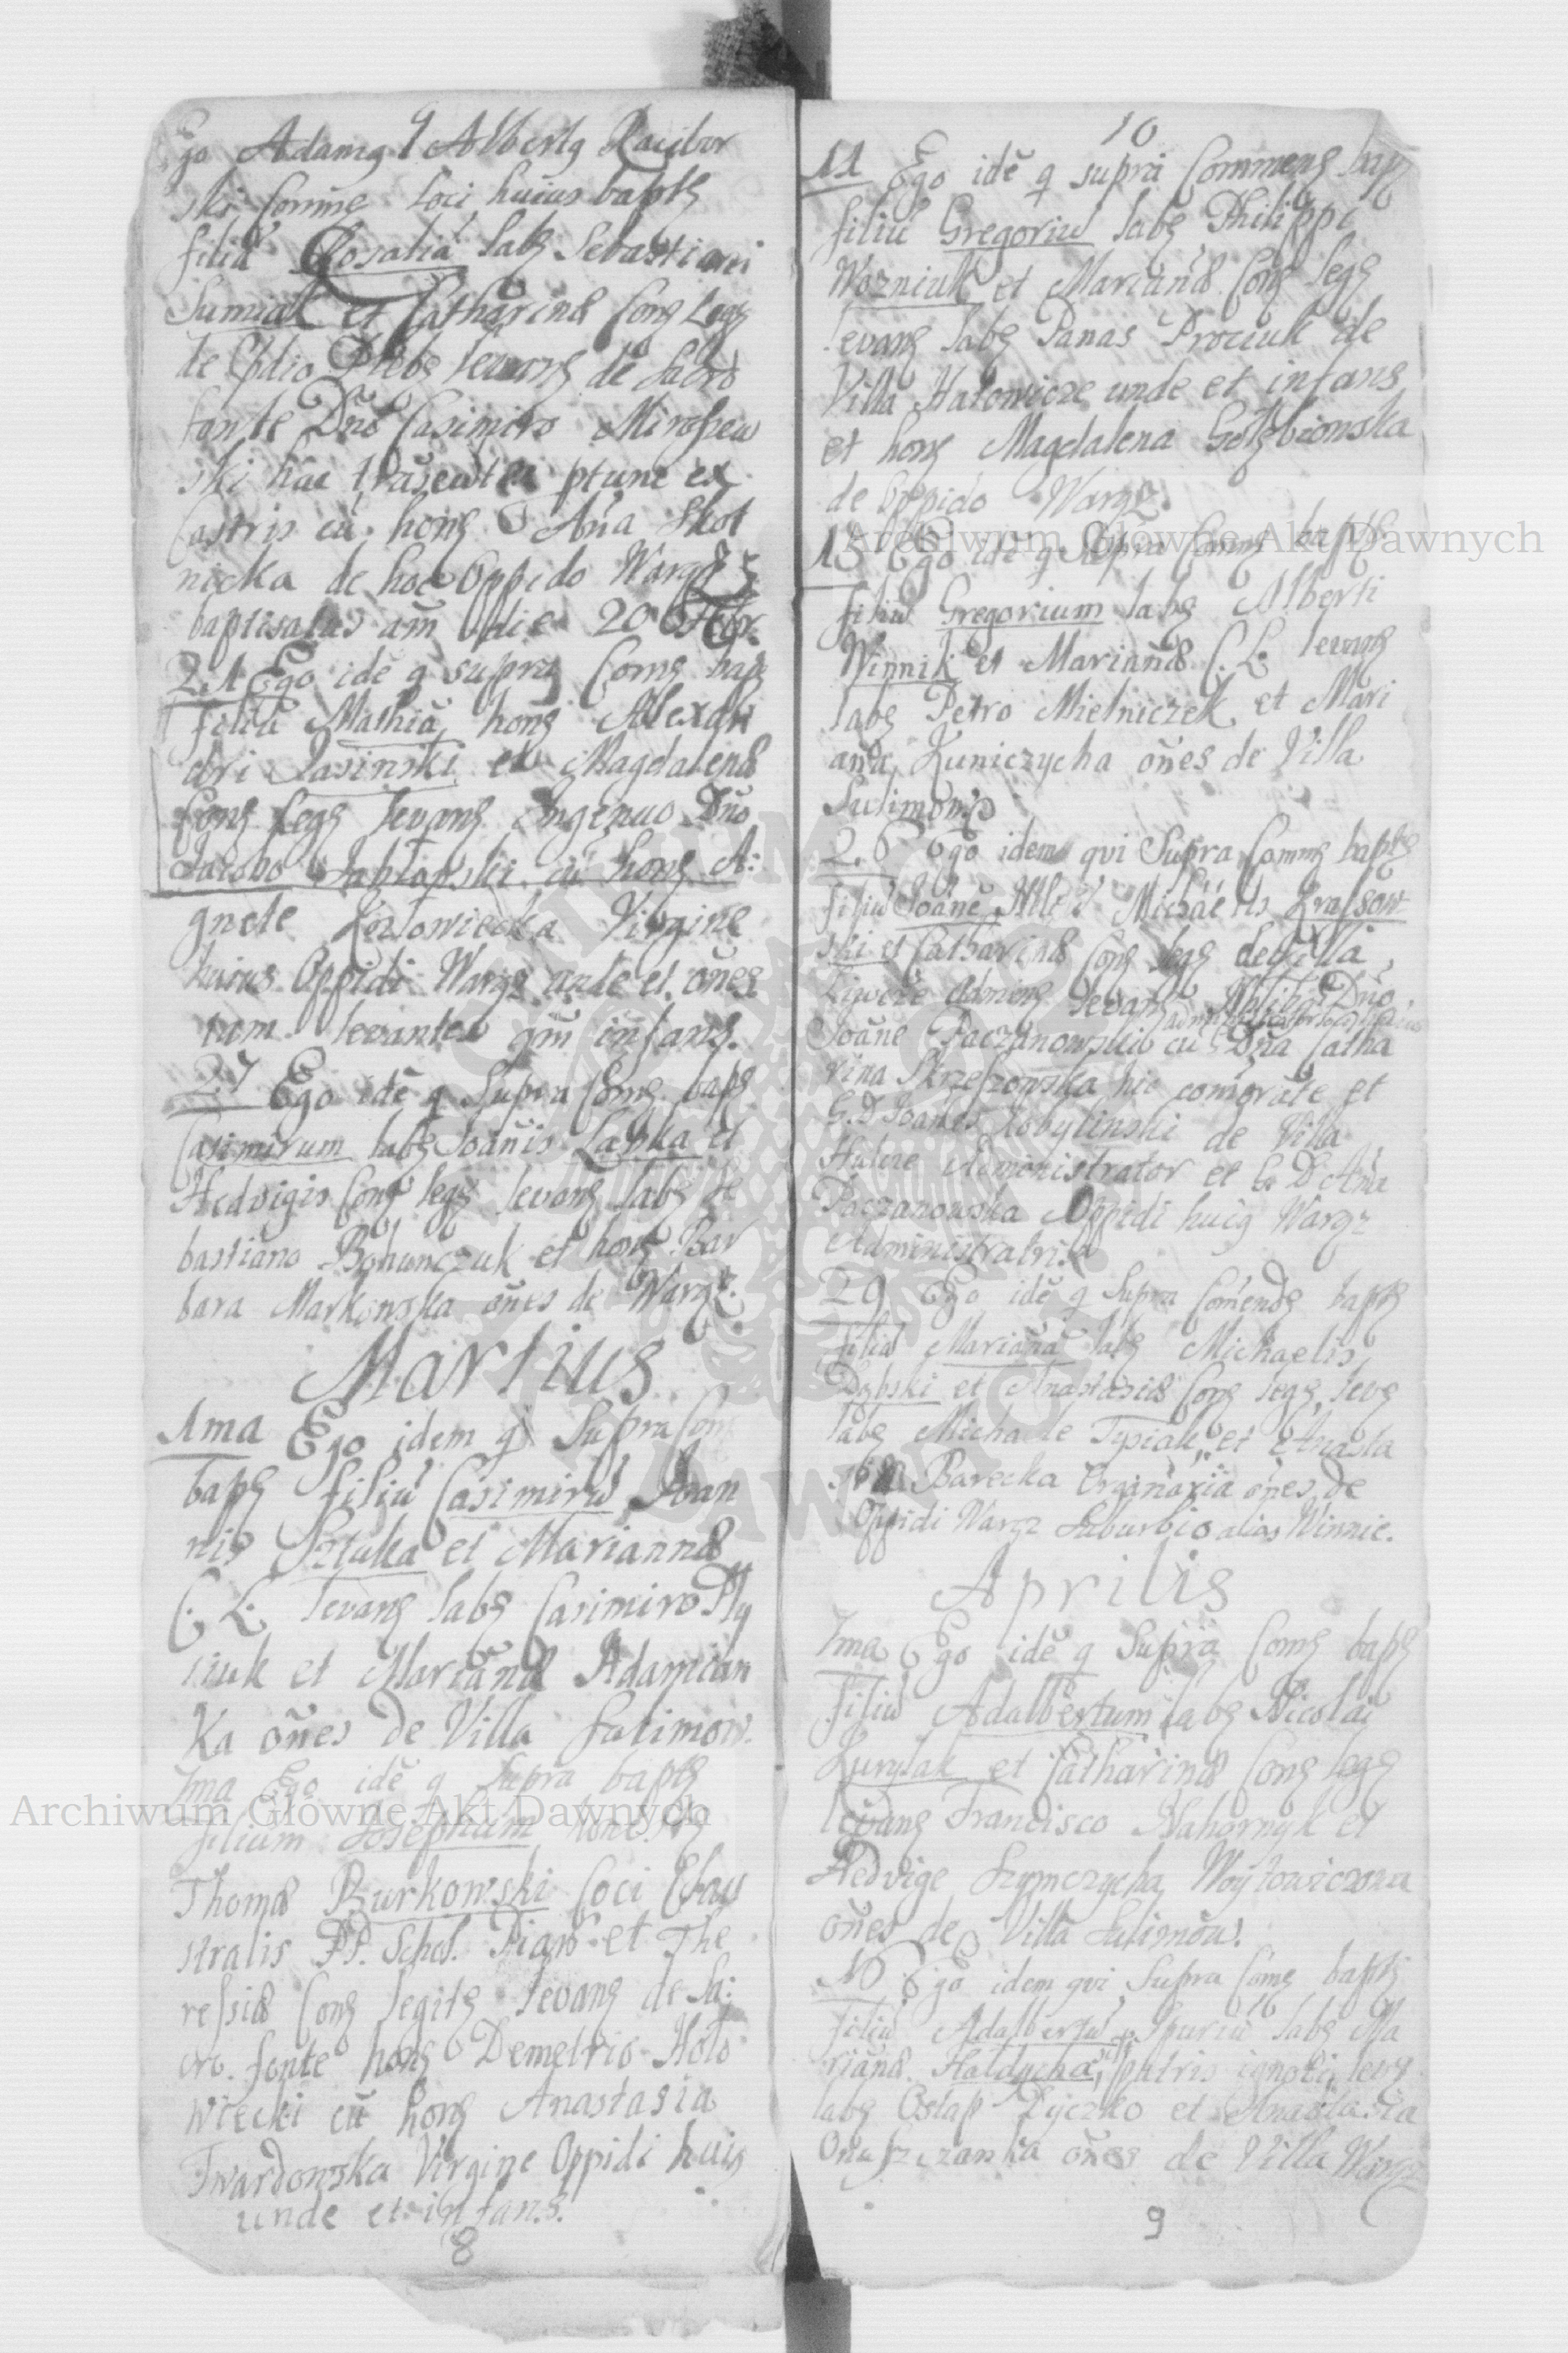 9
Ego Adamq Albertq Racibor
ski Comms loci huius bapts
filiã Rosaliã labs Sebastiani
Sumiak et Catharinæ Cong Legs
de Oppdio levans de Sacro
fonte Dnõ Casimiro
ski hac ptunc ex
Castris cũ hong Añna Skot
nicka de hoc Oppido Wargz
baptisatus die 20 Febr.
21 Ego idẽ q supra Coms bap
filiũ Mathiã hong Alexan
dri Jasinski et Magdalenæ
Cong Legs levans Ingenuo Dño
Jacobo cũ hong A:
gnete Virgine
huius Oppidi Wargz unde et oñes
tam levantes qm infans.
27 Ego idẽ q Supra Coms baps
Casimirum labs Joañis Lapka et
Hedvigis Cong legs levans labs Se
bastiano Bohunczuk et hong Bar
bara Markowska oñes de Wargz.
Martius
1ma Ego idem q Supra Com
baps filiũ Casimirũ Joan
nis Sztuka et Mariannæ
C: L: levans labs Casimiro Ply
siuk et Mariãna Adamcian
Ka oñes de Villa Sulimow.
1ma Ego idẽ q Supra bapts
filium Josephum
Thomæ Burkowski loci Clau
stralis PP. Schol. Piarũ et The
ressiæ Cong legits levans de Sa:
cro fonte hong Demetrio Holo
wiecki cũ hong Anastasia
Twardowska Virgine Oppidi huis
unde et infans.
8
10
11 Ego idẽ q supra Commens bap
filiũ Gregoriũ labs Philippi
Wozniuk et Mariãnæ Cong legs
levans labs Panas Prociuk de
Villa Hatowicze unde et infans
et hong Magdalena Gołębiowska
de Oppido Wargz.
13 Ego idẽ q Supra Comms bapts
filiũ Gregorium labs Alberti
Winnik et Mariãnæ C: L: levans
labs Petro Mielniczek et Mari
anna Kuniczycha oñes de Villa
Sulimow
26 Ego idem qvi Supra Comms bapts
filiũ Joañe Michaelis Krassow
ski et Catharinæ Cong legs de Villa
levans Dño
Joañe Paczanowski cũ Dña Catha
rina Skrzeszowska hic comorãte et
G.D. Joañes Kobylinski de Villa
Hulcze Administrator et G.D. Aña
Paczanowska Oppidi huiq Wargz
Administratrix
29 Ego idẽ q Supra Comends bapts
filiã Mariãnã labs Michaelis
Dąbski et Anastasiæ Cong legs, levs
labs Michaele Tysiak et Anasta
sia Barecka Organaria oñes de
Oppidi Wargz Suburbio alias Winnic.
Aprilis
1ma Ego idẽ q Supra Coms baps
filiũ Adalbertum labs Nicolai
Kurylak et Catharinæ Cong legs
levans Francisco Nahornyk et
Hedvige Szymczycha Woytowiczowa
oñes de Villa Sulimow.
10 Ego idem qvi Supra Coms bapts
filiũ Adalbertũ Spuriũ labs Ma
riãnæ Haldycha, patris ignoti, levs
labs Ostap Dyczko et Anastasia
Onufszczanka oñes de Villa Wargz
9
Archiwum Główne Akt Dawnych
Archiwum Główne Akt Dawnych